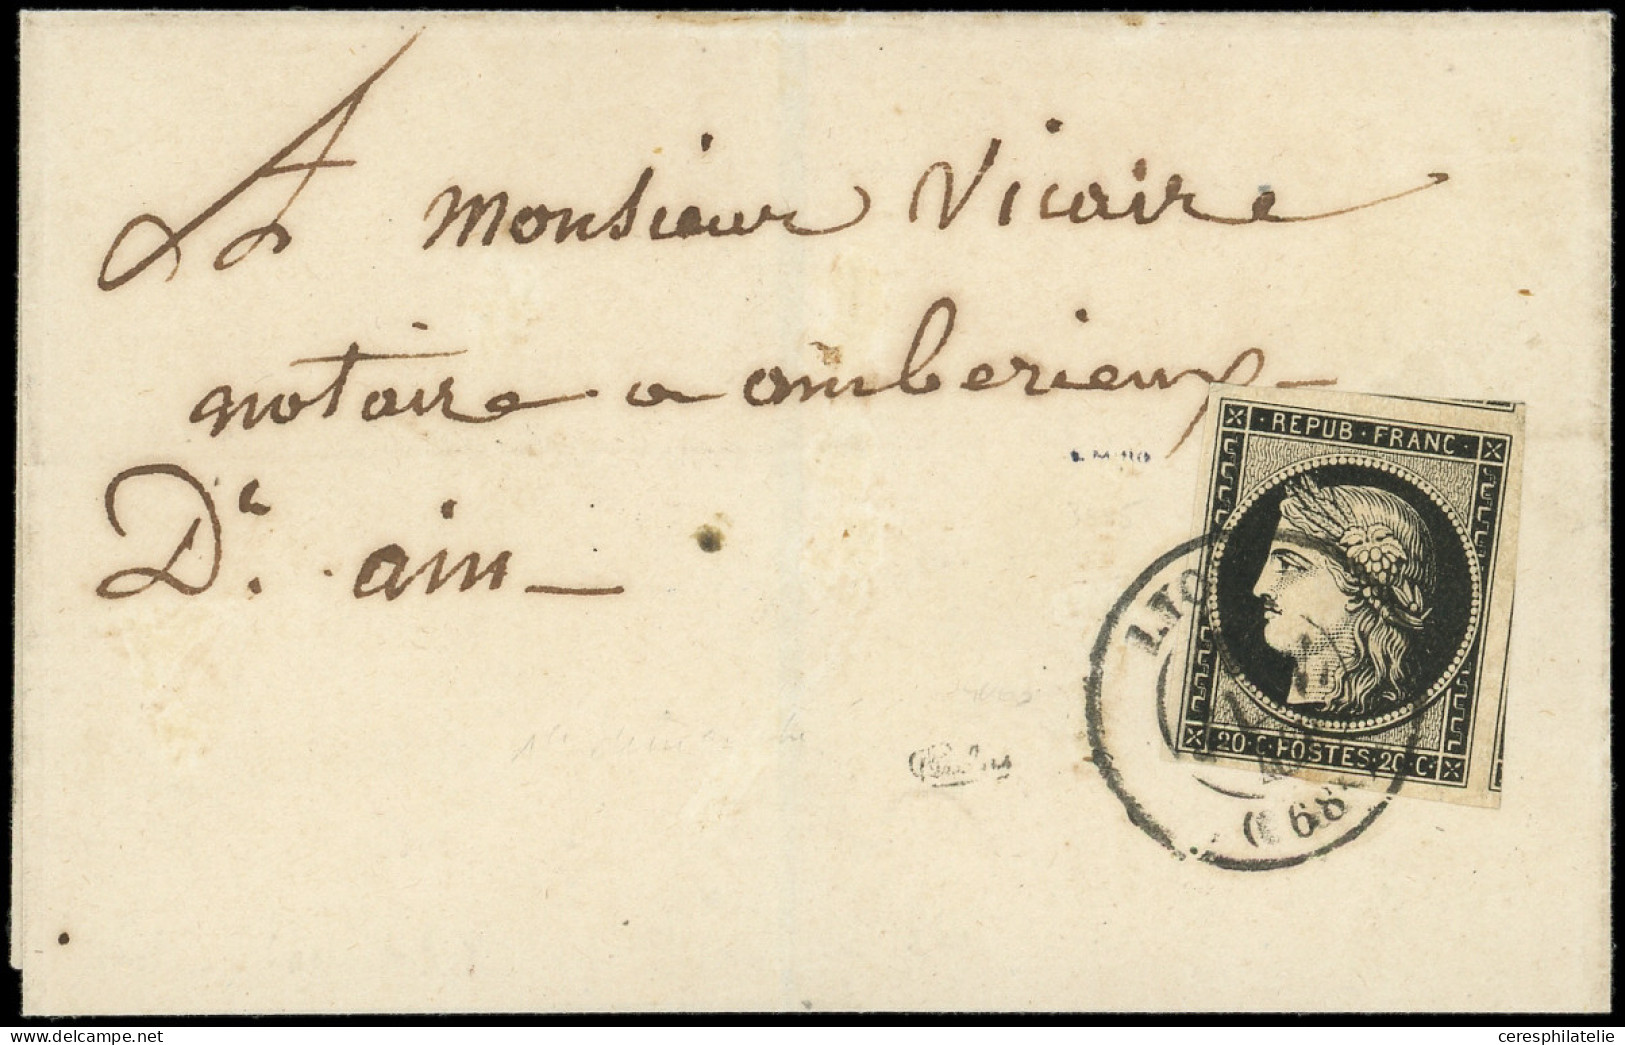 A Monsieur Vicaire
notaire a amberieux
Dt. ain
REPUB · FRANC ·
20 · C · POSTES · 20 · C ·
LYO
(68)
ceresphilatelie